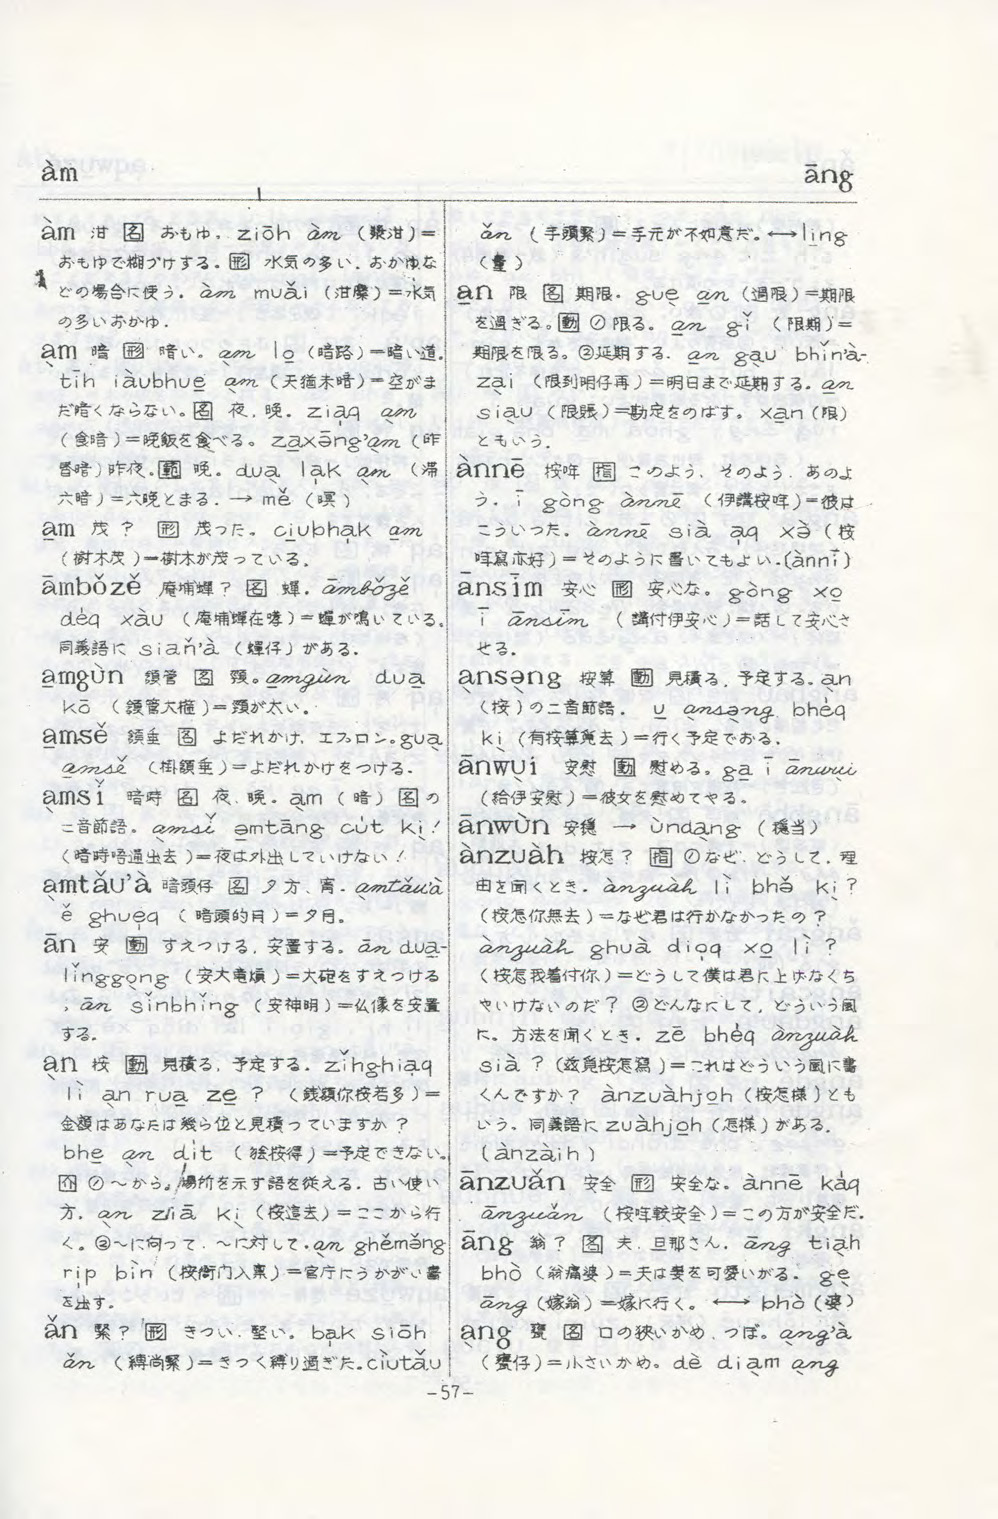 àm
āng
àm 泔 名 おもゆ. ziōh àm (漿泔)=
おもゆで糊づけする。形 水気の多い. おかゆな
どの場合に使う. àm muǎi (泔糜)=水気
の多いおかゆ.
a̱m 暗 形 暗い。a̱m lo̱ (暗路)=暗い道。
tīh iàubhue̱ a̱m (天猶未暗)=空がま
だ暗くならない。名 夜. 晩. ziạq ạm
(食暗)=晩飯を食べる。zạxəng'ạm (昨
昏暗)昨夜.動 晩. dua̱ lạk ạm (滞
六暗)=六晩とまる. → mě (暝)
ạm 茂 ? 形 茂った。ciụbhạk ạm
(樹木茂)=樹木が茂っている.
āmbǒzě 庵埔蟬? 名 蟬. āmbǒzě
dėq xàu (庵埔蟬在哮)=蟬が鳴いている。
同義語に siǎn'à (蟬仔)がある.
a̱mgùn 頷管 名 頸。a̱mgùn dua̱
kō (頷管大箍)=頸が太い。
a̱msě 頷垂 名 よだれかけ, エプロン。gụa
a̱msě (掛頷垂)=よだれかけをつける.
ạmsǐ 暗時 名 夜. 晩. ạm (暗)名の
二音節語。ạmsǐ əmtāng cút kị!
(暗時唔通出去)=夜は外出していけない!
ạmtǎu'à 暗頭仔 名 夕方. 宵. ạmtǎu'à
ě ghuėq (暗頭的月)=夕月。
ān 安 動 すえつける. 安置する。ān dua̱-
lǐnggọng (安大竜熕)=大砲をすえつける
, ān sǐnbhǐng (安神明)=仏像を安置
する.
ạn 按 動 見積る, 予定する. zǐhghiạq
lì ạn rua̱ ze̱ ? (銭額你按若多)=
金額はあなたは幾ら位と見積っていますか?
bhe̱ ạn dịt (𣍐按得)=予定できない。
介 ①～から。場所を示す語を従える. 古い使い
方. ạn ziā kị (按這去)=ここから行
く。②～に向って. ～に対して.ạn ghěmǎng
rịp bìn (按衙门入稟)=官庁にうかがい書
を出す。
ǎn 緊? 形 きつい. 堅い。bạk siōh
ǎn (縛尚緊)=きつく縛り過ぎた.ciùtǎu
ǎn (手頭緊)=手元が不如意だ。⟷ lịng
a̱n 限 名 期限. gue̱ a̱n (過限)=期限
を過ぎる。動 ①限る. a̱n gǐ (限期)=
期限を限る。②延期する. a̱n gạu bhǐn'à-
zại (限到明仔再)=明日まで延期する. a̱n
siạu (限賬)=勘定をのばす. xa̱n(限)
ともいう.
ànnē 按哖 指 このよう. そのよう. あのよ
う. ī gòng ànnē (伊講按哖)=彼は
こういった。ànnē sià ạq xə̀ (按
哖寫亦好)=そのように書いてもよい.{ànnī}
ānsīm 安心 形 安心な。gòng xo̱
ī ānsīm (講付伊安心)=話して安心さ
せる.
ạnsəng 按算 動 見積る, 予定する. ạn
(按)の二音節語. u̱ ạnsəng bhėq
kị (有按算覓去)=行く予定でおる.
ānwụi 安慰 動 慰める。ga̱ ī ānwụi
(給伊安慰)=彼女を慰めてやる。
ānwùn 安穏 → ùndạng (穏当)
ànzuàh 按怎? 指 ①なぜ. どうして. 理
由を聞くとき. ànzuàh lì bhə̌ kị ?
(按怎你無去)=なぜ君は行かなかったの?
ànzuàh ghuà diọq xo̱ lì ?
(按怎我着付你)=どうして僕は君に上げなくち
ゃいけないのだ? ②どんなにして, どういう風
に. 方法を聞くとき. zē bhėq ànzuàh
sià ? (玆覓按怎寫)=これはどういう風に書
くんですか? ànzuàhjo̱h (按怎様)とも
いう. 同義語に zuàhjo̱h (怎様)がある.
(ànzàih)
ānzuǎn 安全 形 安全な。ànnē kȧq
ānzuǎn (按哖較安全)=この方が安全だ.
āng 翁? 名 夫. 旦那さん. āng tiạh
bhò (翁痛婆)=夫は妻を可愛いがる. gẹ
āng (嫁翁)=嫁に行く。⟷ bhò (婆)
ạng 甕 名 口の狭いかめ. つぼ。ạng'à
(甕仔)=小さいかめ。dè diạm ạng
-57-